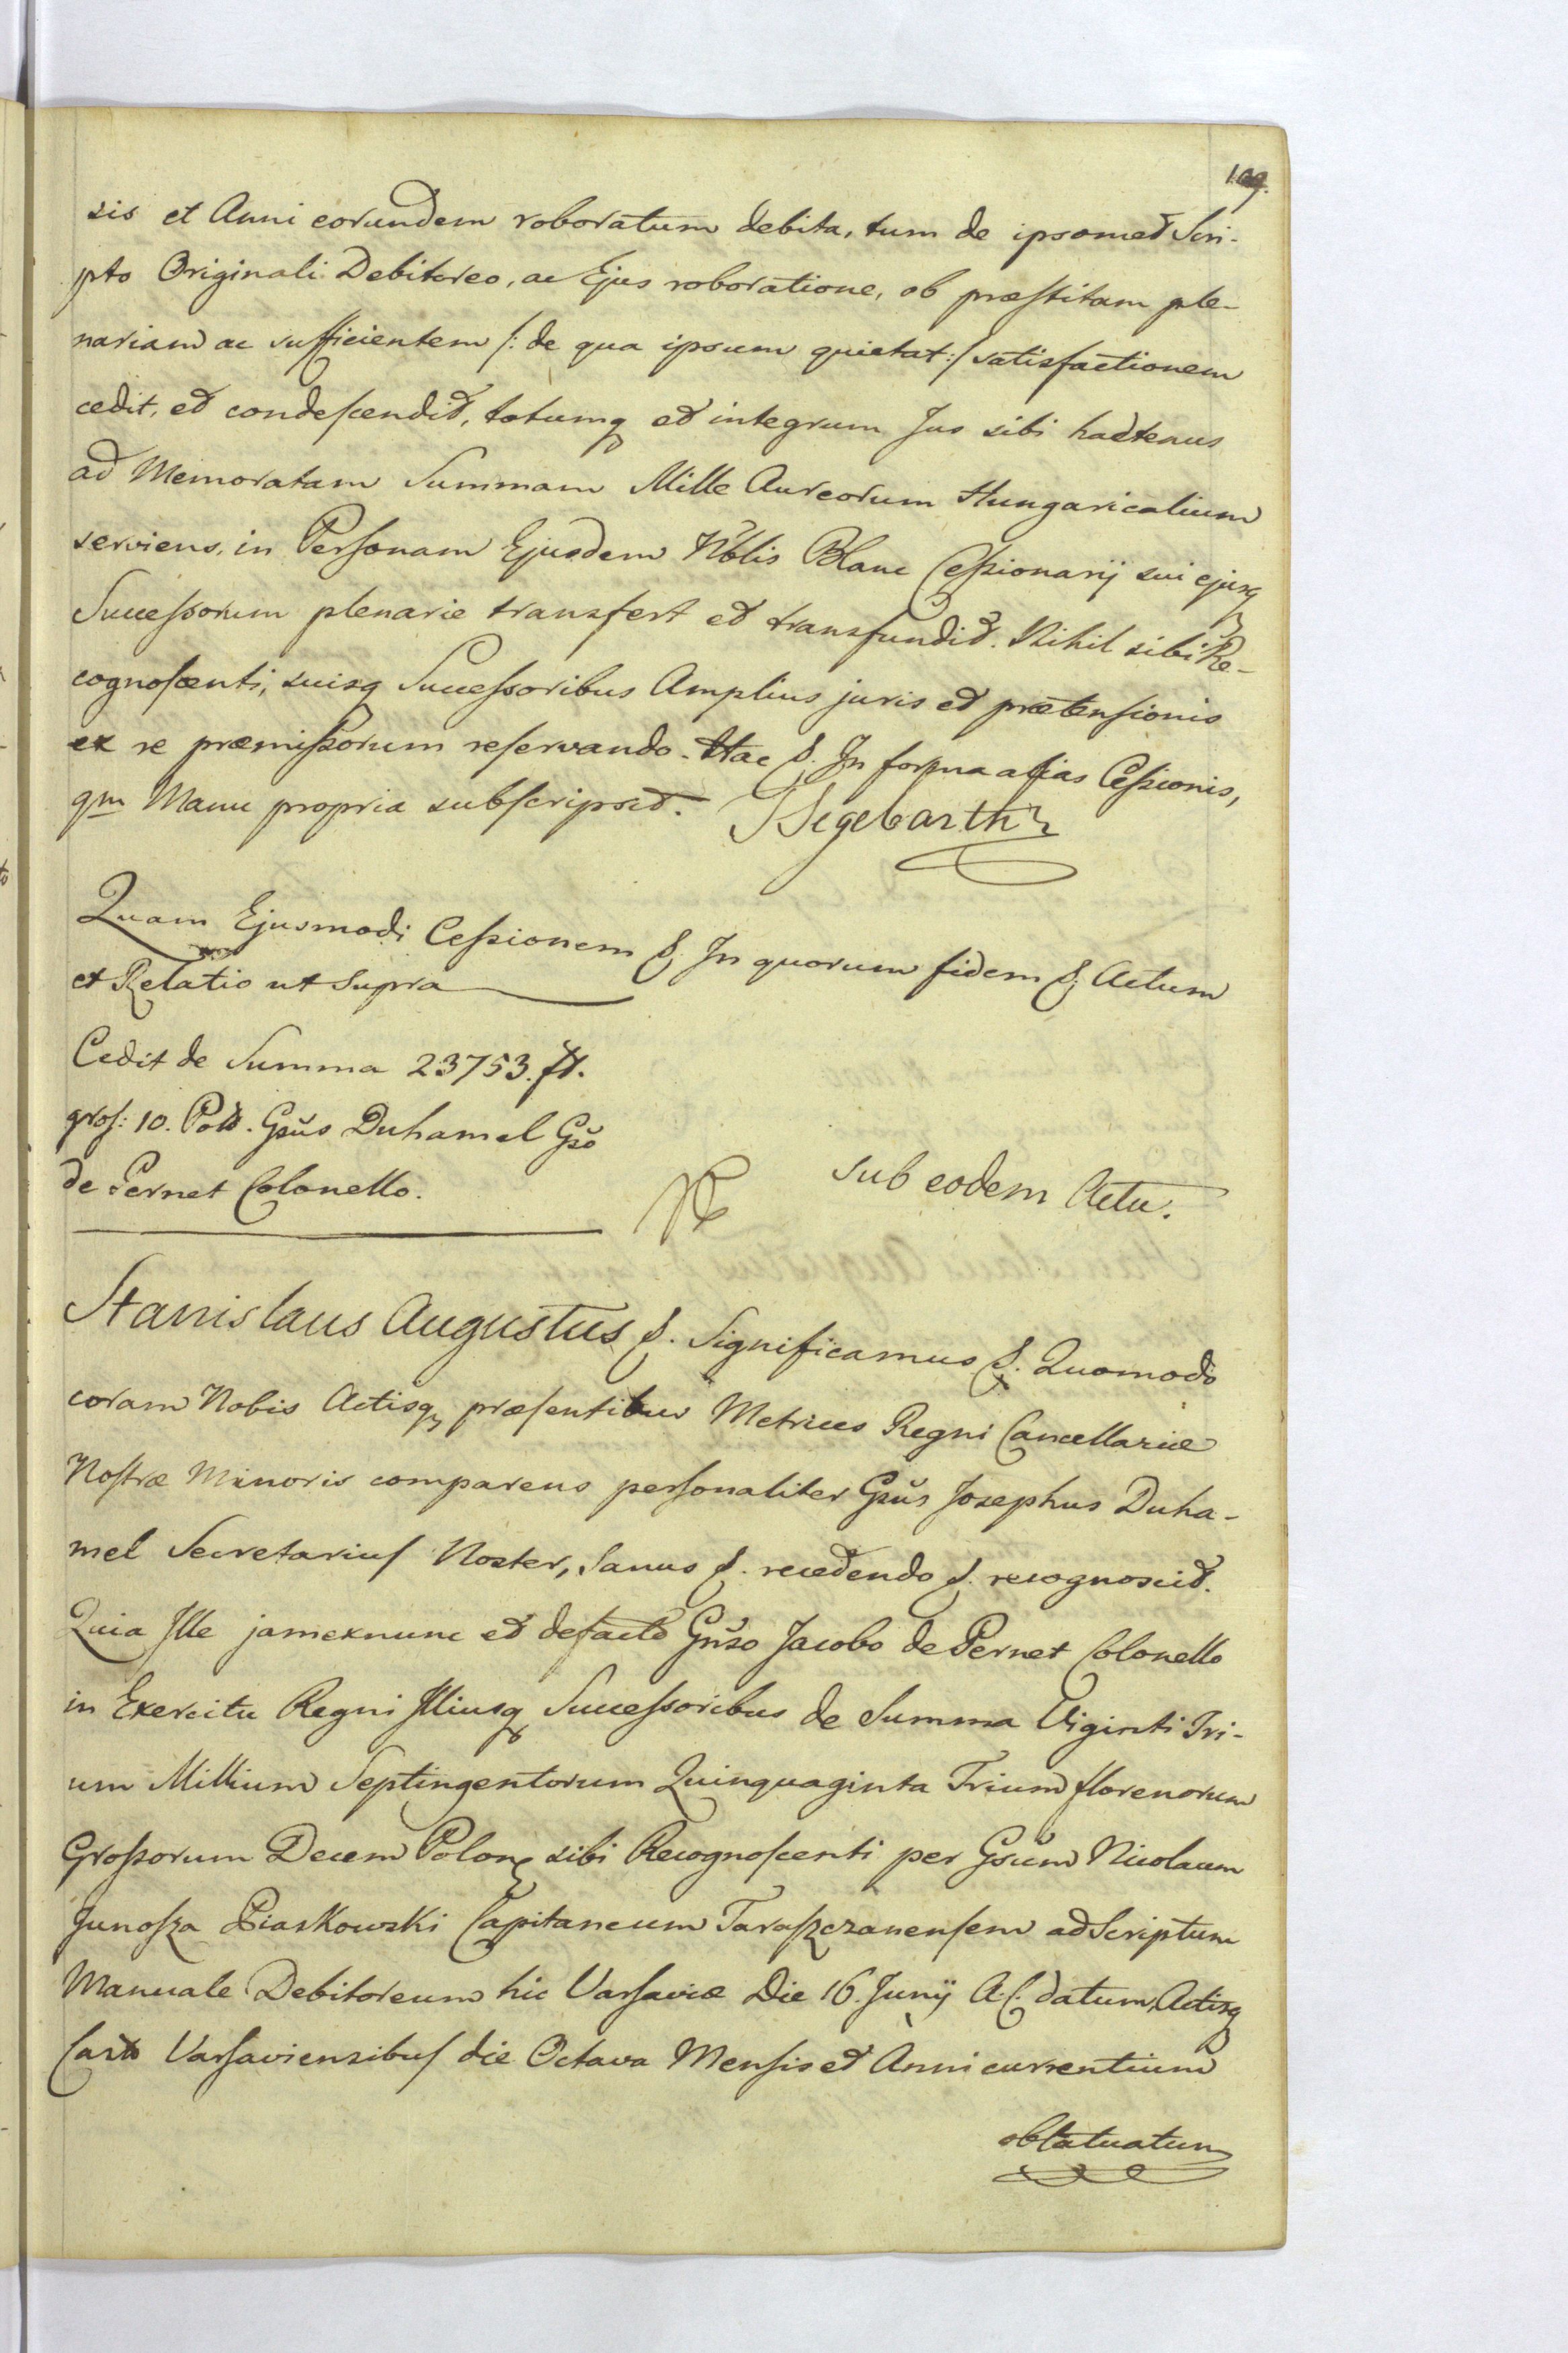 109.
sis et Anni eorundem roboratum debita, tum de ipsomet Scri-
pto Originali Debitoreo, ac Ejus roboratione, ob præstitam ple-
nariam ac sufficientem /: de qua ipsum quietat :/ satisfactionem
cedit, et condescendit, totumq et integrum Jus sibi hactenus
ad Memoratam Summam Mille Aureorum Hungaricalium
serviens, in Personam Ejusdem Nblis Blanc Cessionarij sui ejusq
Successorum plenarie transfert et transfundit. Nihil sibi Re-
cognoscenti, suisq Successoribus Amplius juris et prætensionis
ex re præmissorum reservando. Hac &. In forma alias Cessionis,
qm Manu propria subscripsit. Segebarth
Quam Ejusmodi Cessionem &. In quorum fidem &. Actum
et Relatio ut supra
Cedit de Summa 23753. fl.
gros: 10. Poll. Gsus Duhamel Gso
de Pernet Colonello.
sub eodem Actu.
Stanislaus Augustus &. Significamus &. Quomodo
coram Nobis Actisq præsentibus Metrices Regni Cancellariæ
Nostræ Minoris comparens personaliter Gsus Josephus Duha-
mel Secretarius Noster, Sanus &. recedendo &. recognoscit.
Quia Ille jamexnunc et defacto Gnso Jacobo de Pernet Colonello
in Exercitu Regni Illiusq Successoribus de Summa Viginti Tri-
um Millium Septingentorum Quinquaginta Trium florenorum
Grossorum Decem Polon sibi Recognoscenti per Gsum Nicolaum
Junosza Piaskowski Capitaneum Taraszczanensem ad Scriptum
Manuale Debitoreum hic Varsaviæ Die 16. Junij A.C. datum, Actisq
Castr Varsaviensibus die Octava Mensis et Anni currentium
oblatuatum